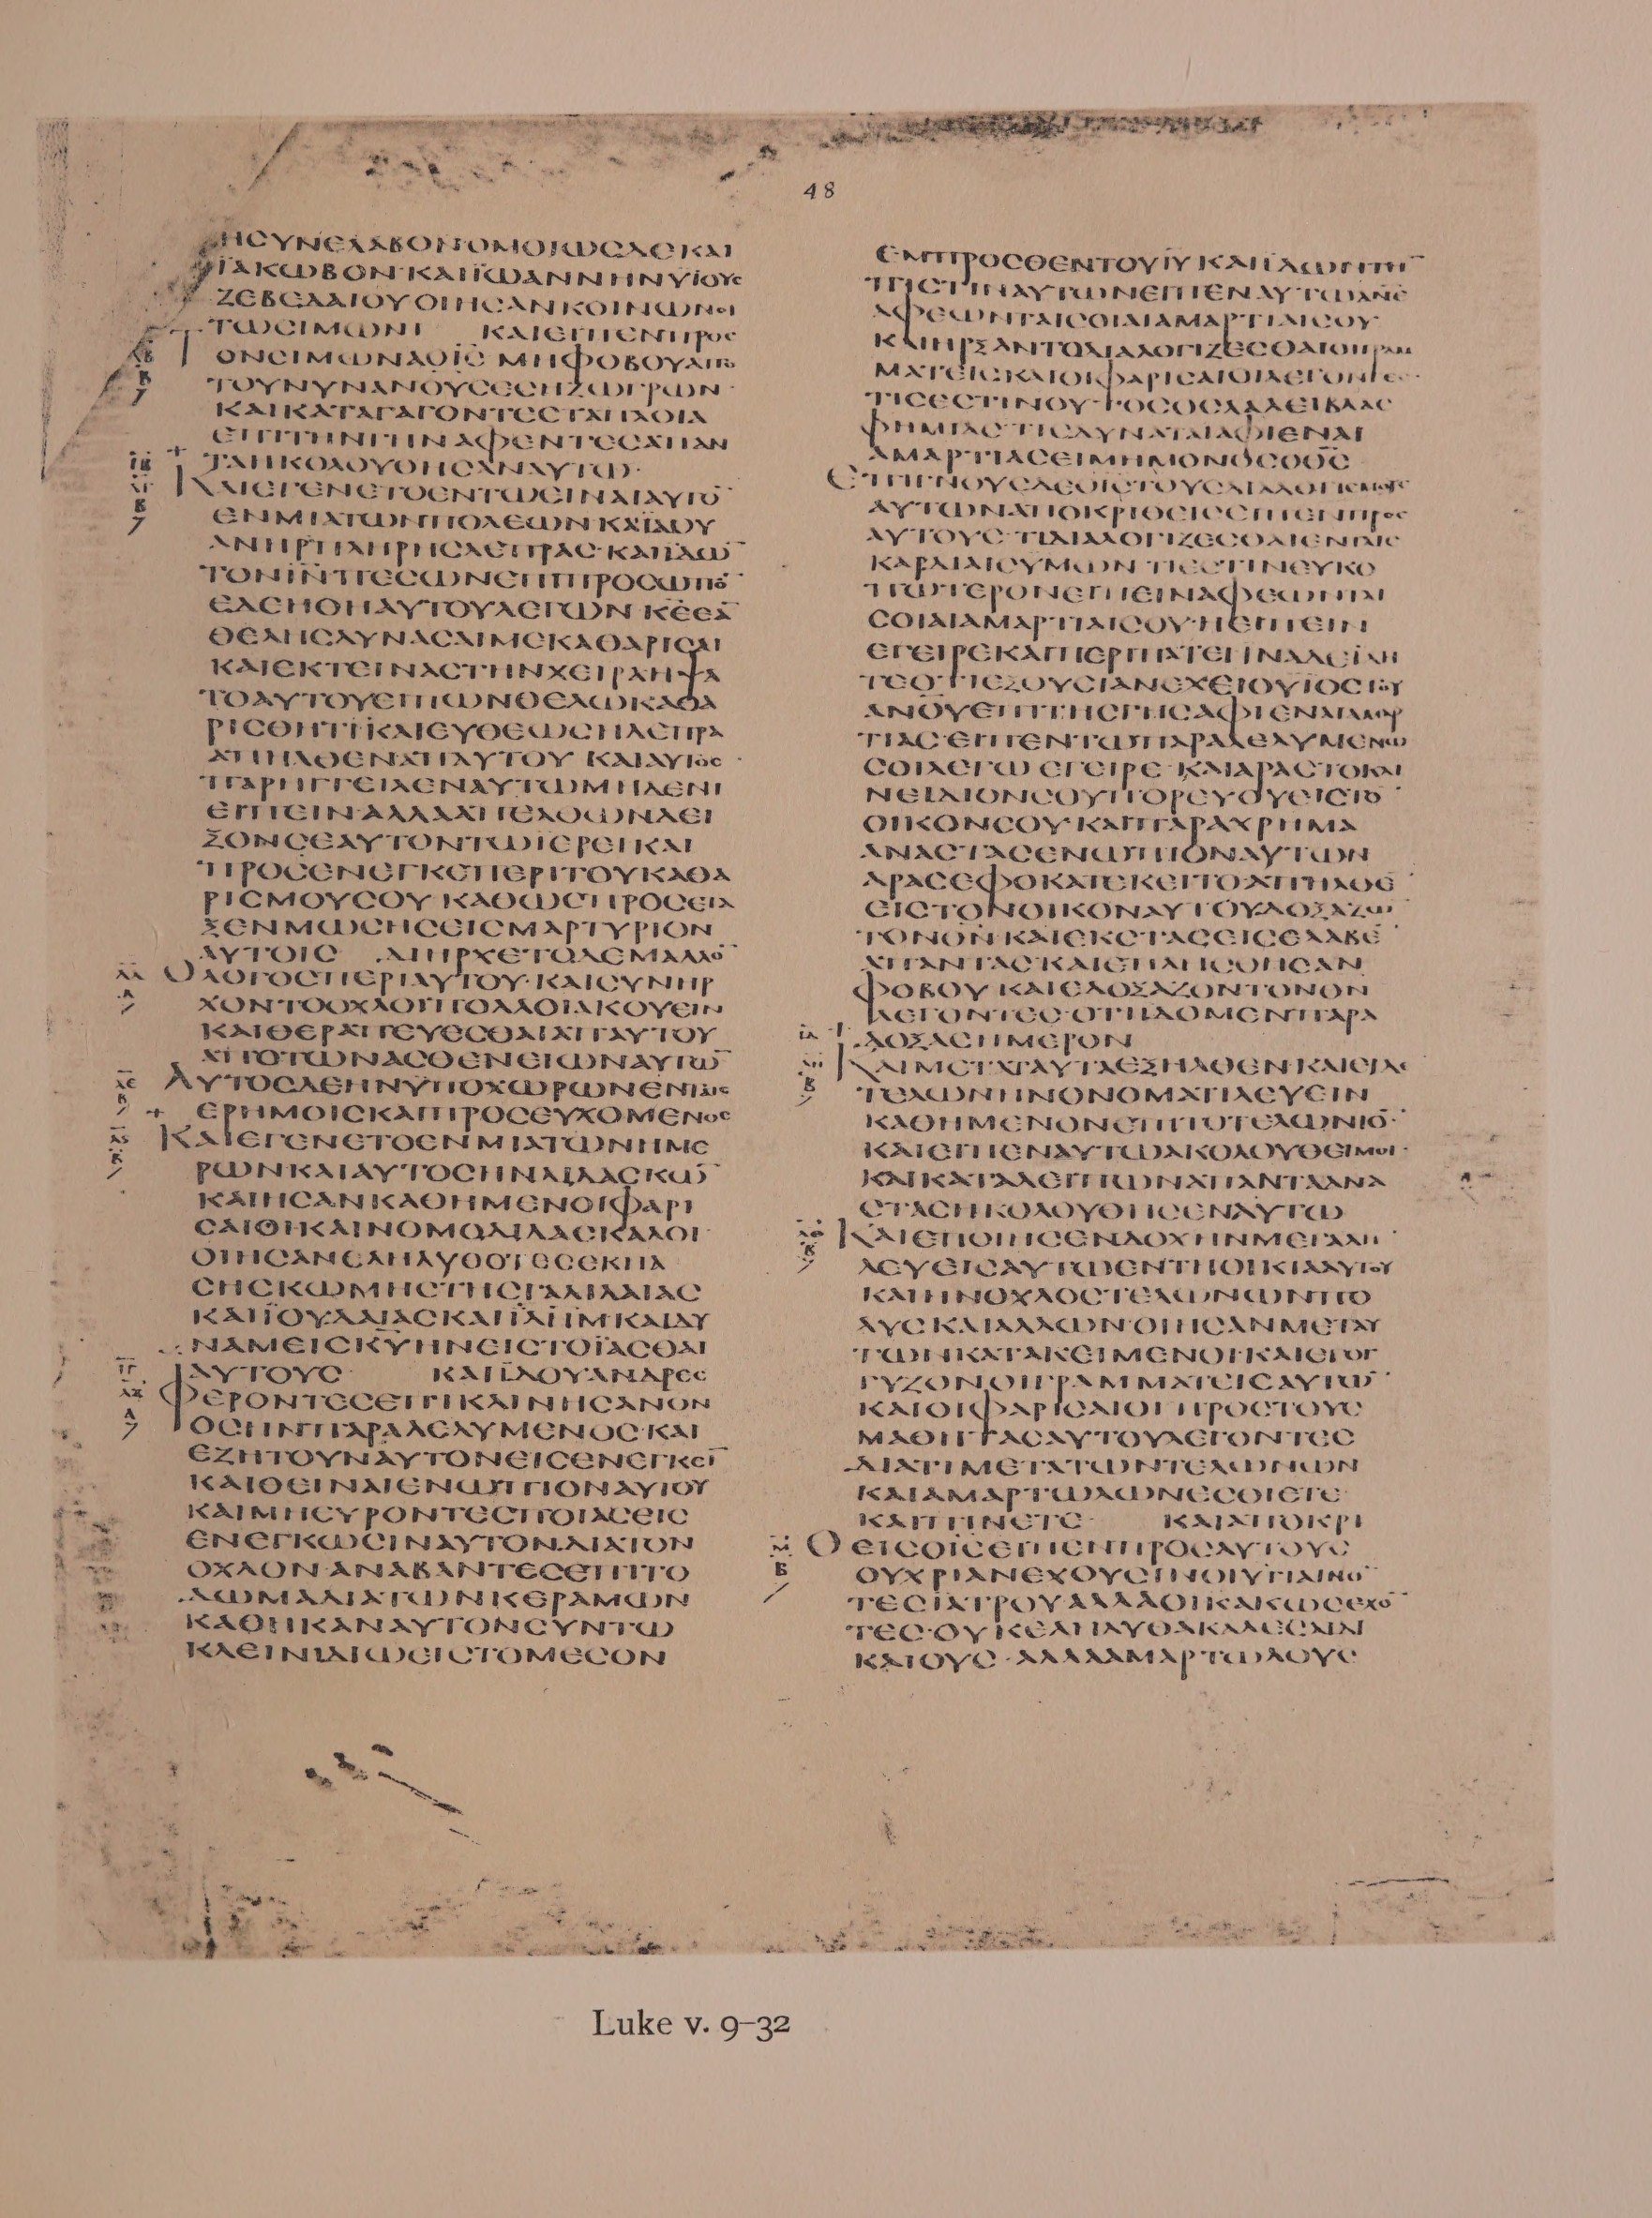 48
ΗCΥΝΕΛΑΒΟΝΟΜΟΙΩCΔΕΚΑΙ
ΪΑΚΩΒΟΝ·ΚΑΙΪΩΑΝΝΗΝΥΪΟΥC
ΖΕΒΕΔΑΙΟΥΟΙΗCΑΝΚΟΙΝΩΝΟΙ
ΤΩCΙΜΩΝΙ ΚΑΙΕΙΠΕΝΠΡΟC
ΤΟΝCΙΜΩΝΑΟΙ̅C̅ ΜΗΦΟΒΟΥΑΠΟ
ΤΟΥΝΥΝΑΝΟΥCΕCΗΖΩΓΡΩΝ·
ΚΑΙΚΑΤΑΓΑΓΟΝΤΕCΤΑΠΛΟΙΑ
ΕΠΙΤΗΝΓΗΝΑΦΕΝΤΕCΑΠΑΝ
ΤΑΗΚΟΛΟΥΘΗCΑΝΑΥΤΩ·
ΚΑΙΕΓΕΝΕΤΟΕΝΤΩΕΙΝΑΙΑΥΤΟ̅
ΕΝΜΙΑΤΩΝΠΟΛΕΩΝΚΑΪΔΟΥ
ΑΝΗΡΠΛΗΡΗCΛΕΠΡΑC·ΚΑΙΪΔΩ̅
ΤΟΝΙ̅Ν̅ΠΕCΩΝΕΠΙΠΡΟCΩΠΟ̅
ΕΔΕΗΘΗΑΥΤΟΥΛΕΓΩΝΚ̅Ε̅ΕΑ̅
ΘΕΛΗCΔΥΝΑCΑΙΜΕΚΑΘΑΡΙCΑΙ
ΚΑΙΕΚΤΕΙΝΑCΤΗΝΧΕΙΡΑΗΨΑ
ΤΟΑΥΤΟΥΕΙΠΩΝΘΕΛΩΚΑΘΑ
ΡΙCΘΗΤΙ·ΚΑΙΕΥΘΕΩCΗΛΕΠΡΑ
ΑΠΗΛΘΕΝΑΠΑΥΤΟΥ ΚΑΙΑΥΤΟC
ΠΑΡΗΓΓΕΙΛΕΝΑΥΤΩΜΗΔΕΝΙ
ΕΙΠΕΙΝ·ΑΛΛΑΑΠΕΛΘΩΝΔΕΙ
ΞΟΝCΕΑΥΤΟΝΤΩΪΕΡΕΙΚΑΙ
ΠΡΟCΕΝΕΓΚΕΠΕΡΙΤΟΥΚΑΘΑ
ΡΙCΜΟΥCΟΥ·ΚΑΘΩCΠΡΟCΕΤΑ
ΞΕΝΜΩCΗCΕΙCΜΑΡΤΥΡΙΟΝ
ΑΥΤΟΙC ΔΙΗΡΧΕΤΟΔΕΜΑΛΛΟ̅
ΟΛΟΓΟCΠΕΡΙΑΥΤΟΥ·ΚΑΙCΥΝΗΡ
ΧΟΝΤΟΟΧΛΟΙΠΟΛΛΟΙΑΚΟΥΕΙΝ
ΚΑΙΘΕΡΑΠΕΥΕCΘΑΙΑΠΑΥΤΟΥ
ΑΠΟΤΩΝΑCΘΕΝΕΙΩΝΑΥΤΩ̅
ΑΥΤΟCΔΕΗΝΥΠΟΧΩΡΩΝΕΝΤΑΙC
ΕΡΗΜΟΙCΚΑΙΠΡΟCΕΥΧΟΜΕΝΟC
ΚΑΙΕΓΕΝΕΤΟΕΝΜΙΑΤΩΝΗΜΕ
ΡΩΝΚΑΙΑΥΤΟCΗΝΔΙΔΑCΚΩ̅
ΚΑΙΗCΑΝΚΑΘΗΜΕΝΟΙΦΑΡΙ
CΑΙΟΙΚΑΙΝΟΜΟΔΙΔΑCΚΑΛΟΙ
ΟΙΗCΑΝΕΛΗΛΥΘΟΤΕCΕΚΠΑ
CΗCΚΩΜΗCΤΗCΓΑΛΙΛΑΙΑC
ΚΑΙΪΟΥΔΑΙΑCΚΑΙΪΛΗΜΚΑΙΔΥ
ΝΑΜΕΙCΚ̅Υ̅ΗΝΕΙCΤΟΪΑCΘΑΙ
ΑΥΤΟΥC ΚΑΙΪΔΟΥΑΝΔΡΕC
ΦΕΡΟΝΤΕCΕΠΙΚΛΙΝΗCΑΝΟΝ
ΟCΗΝΠΑΡΑΛΕΛΥΜΕΝΟC·ΚΑΙ
ΕΖΗΤΟΥΝΑΥΤΟΝΕΙCΕΝΕΓΚΕΙ̅
ΚΑΙΘΕΙΝΑΙΕΝΩΠΙΟΝΑΥΤΟΥ
ΚΑΙΜΗΕΥΡΟΝΤΕCΠΟΙΑCΕΙC
ΕΝΕΓΚΩCΙΝΑΥΤΟΝΔΙΑΤΟΝ
ΟΧΛΟΝ·ΑΝΑΒΑΝΤΕCΕΠΙΤΟ
ΔΩΜΑΔΙΑΤΩΝΚΕΡΑΜΩΝ
ΚΑΘΗΚΑΝΑΥΤΟΝCΥΝΤΩ
ΚΛΕΙΝΙΔΙΩΕΙCΤΟΜΕCΟΝ
ΕΜΠΡΟCΘΕΝΤΟΥΙ̅Υ̅ΚΑΙΪΔΩΝΤΗ̅
ΠΙCΤΙΝΑΥΤΩΝΕΙΠΕΝΑΥΤΩΑΝΕ
ΑΦΕΩΝΤΑΙCΟΙΑΙΑΜΑΡΤΙΑΙCΟΥ·
ΚΑΙΗΡΞΑΝΤΟΔΙΑΛΟΓΙΖΕCΘΑΙΟΙΓΡΑΜ
ΜΑΤΕΙCΚΑΙΟΙΦΑΡΙCΑΙΟΙΛΕΓΟΝΤΕC·
ΤΙCΕCΤΙΝΟΥΤΟCΟCΛΑΛΕΙΒΛΑC
ΦΗΜΙΑC·ΤΙCΔΥΝΑΤΑΙΑΦΙΕΝΑΙ
ΑΜΑΡΤΙΑCΕΙΜΗΜΟΝΟCΟΘ̅C̅
ΕΠΙΓΝΟΥCΔΕΟΙ̅C̅ΤΟΥCΔΙΑΛΟΓΙCΜΟΥC
ΑΥΤΩΝΑΠΟΚΡΙΘΕΙCΕΙΠΕΝΠΡΟC
ΑΥΤΟΥC·ΤΙΔΙΑΛΟΓΙΖΕCΘΑΙΕΝΤΑΙC
ΚΑΡΔΙΑΙCΥΜΩΝ·ΤΙΕCΤΙΝΕΥΚΟ
ΠΩΤΕΡΟΝΕΙΠΕΙΝΑΦΕΩΝΤΑΙ
CΟΙΑΙΑΜΑΡΤΙΑΙCΟΥ·ΗΕΙΠΕΙΝ
ΕΓΕΙΡΕΚΑΙΠΕΡΙΠΑΤΕΙΙΝΑΔΕΪΔΗ
ΤΕΟΤΙΕΞΟΥCΙΑΝΕΧΕΙΟΥΪΟCΤΟΥ
ΑΝΟΥΕΠΙΤΗCΓΗCΑΦΙΕΝΑΙΑΜΑΡ
ΤΙΑC·ΕΙΠΕΝΤΩΠΑΡΑΛΕΛΥΜΕΝΩ
CΟΙΛΕΓΩΕΓΕΙΡΕ·ΚΑΙΑΡΑCΤΟΚΛΙ
ΝΕΙΔΙΟΝCΟΥΠΟΡΕΥΟΥΕΙCΤΟ̅
ΟΙΚΟΝCΟΥ·ΚΑΙΠΑΡΑΧΡΗΜΑ
ΑΝΑCΤΑCΕΝΩΠΙΟΝΑΥΤΩΝ
ΑΡΑCΕΦΟΚΑΤΕΚΕΙΤΟΑΠΗΛΘΕ̅
ΕΙCΤΟΝΟΙΚΟΝΑΥΤΟΥΔΟΞΑΖΩ̅
ΤΟΝΘ̅Ν̅·ΚΑΙΕΚCΤΑCΕΙCΕΛΑΒΕ̅
ΑΠΑΝΤΑC·ΚΑΙΕΠΛΗCΘΗCΑΝ
ΦΟΒΟΥ·ΚΑΙΕΔΟΞΑΖΟΝΤΟΝΘ̅Ν̅
ΛΕΓΟΝΤΕC·ΟΤΙΙΔΟΜΕΝΠΑΡΑ
ΔΟΞΑCΗΜΕΡΟΝ
ΚΑΙΜΕΤΑΤΑΥΤΑΕΞΗΛΘΕΝ·ΚΑΙΕΙΔΕ
ΤΕΛΩΝΗΝΟΝΟΜΑΤΙΛΕΥΕΙΝ
ΚΑΘΗΜΕΝΟΝΕΠΙΤΟΤΕΛΩΝΙΟ̅·
ΚΑΙΕΙΠΕΝΑΥΤΩΑΚΟΛΟΥΘΕΙΜΟΙ·
ΚΑΙΚΑΤΑΛΕΙΠΩΝΑΠΑΝΤΑΑΝΑ
CΤΑCΗΚΟΛΟΥΘΗCΕΝΑΥΤΩ
ΚΑΙΕΠΟΙΗCΕΝΔΟΧΗΝΜΕΓΑΛΗ̅
ΛΕΥΕΙCΑΥΤΩΕΝΤΗΟΙΚΙΑΑΥΤΟΥ
ΚΑΙΗΝΟΧΛΟCΤΕΛΩΝΩΝΠΟ
ΛΥCΚΑΙΑΛΛΩΝ·ΟΙΗCΑΝΜΕΤΑΥ
ΤΩΝΚΑΤΑΚΕΙΜΕΝΟΙ·ΚΑΙΕΓΟΓ
ΓΥΖΟΝΟΙΓΡΑΜΜΑΤΕΙCΑΥΤΩ̅
ΚΑΙΟΙΦΑΡΙCΑΙΟΙΠΡΟCΤΟΥC
ΜΑΘΗΤΑCΑΥΤΟΥΛΕΓΟΝΤΕC
ΔΙΑΤΙΜΕΤΑΤΩΝΤΕΛΩΝΩΝ
ΚΑΙΑΜΑΡΤΩΛΩΝΕCΘΙΕΤΕ
ΚΑΙΠΙΝΕΤΕ· ΚΑΙΑΠΟΚΡΙ
ΘΕΙCΟΙ̅C̅ΕΙΠΕΝΠΡΟCΑΥΤΟΥC
ΟΥΧΡΙΑΝΕΧΟΥCΙΝΟΙΥΓΙΑΙΝΟ̅
ΤΕCΙΑΤΡΟΥΑΛΛΑΟΙΚΑΚΩCΕΧΟ̅
ΤΕC·ΟΥΚΕΛΗΛΥΘΑΚΑΛΕCΑΙΔΙ
ΚΑΙΟΥC·ΑΛΛΑΑΜΑΡΤΩΛΟΥC
Luke v. 9–32